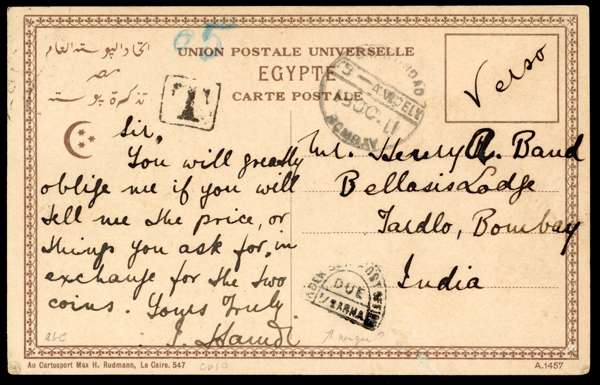 65
اتحاد البوسته العام
مصر
تذكرة بوسته
UNION POSTALE UNIVERSELLE
EGYPTE
CARTE POSTALE
T
BOMBAY
Verso
Sir,
You will greatly
oblige me if you will
tell me the price, or
things you ask for, in
exchange for the two
coins. Yours truly
Mr. Henry A. Band
Bellasis Lodge
Tardlo, Bombay
India
DUE
ANNA
Au Cartosport Max H. Rudmann, Le Caire. 547
A.1457